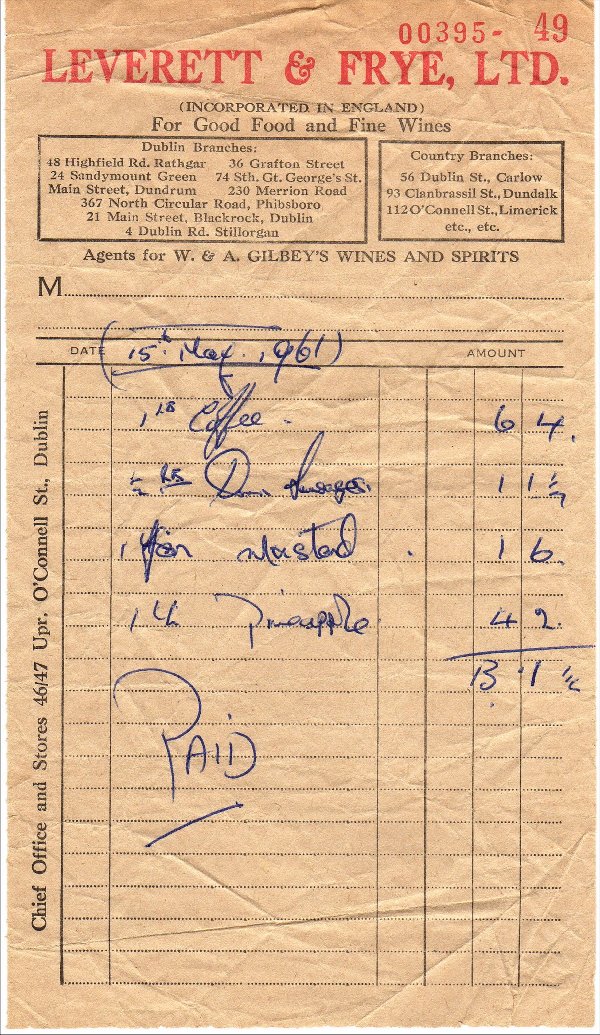 00395- 49
LEVERETT & FRYE, LTD.
(INCORPORATED IN ENGLAND)
For Good Food and Fine Wines
Dublin Branches:
48 Highfield Rd. Rathgar 36 Grafton Street
24 Sandymount Green 74 Sth. Gt. George's St.
Main Street, Dundrum 230 Merrion Road
367 North Circular Road, Phibsboro
21 Main Street, Blackrock, Dublin
4 Dublin Rd. Stillorgan
Country Branches:
56 Dublin St., Carlow
93 Clanbrassil St., Dundalk
112 O'Connell St., Limerick
etc., etc.
Agents for W. & A. GILBEY'S WINES AND SPIRITS
M
DATE 15th May. 1961 AMOUNT
1 lb Coffee. 6 4.
½ lb Sausages. 1 1½
1 Mustard. 1 6.
1 Pineapple. 4 2.
13.1½
PAID
Chief Office and Stores 46/47 Upr. O'Connell St., Dublin